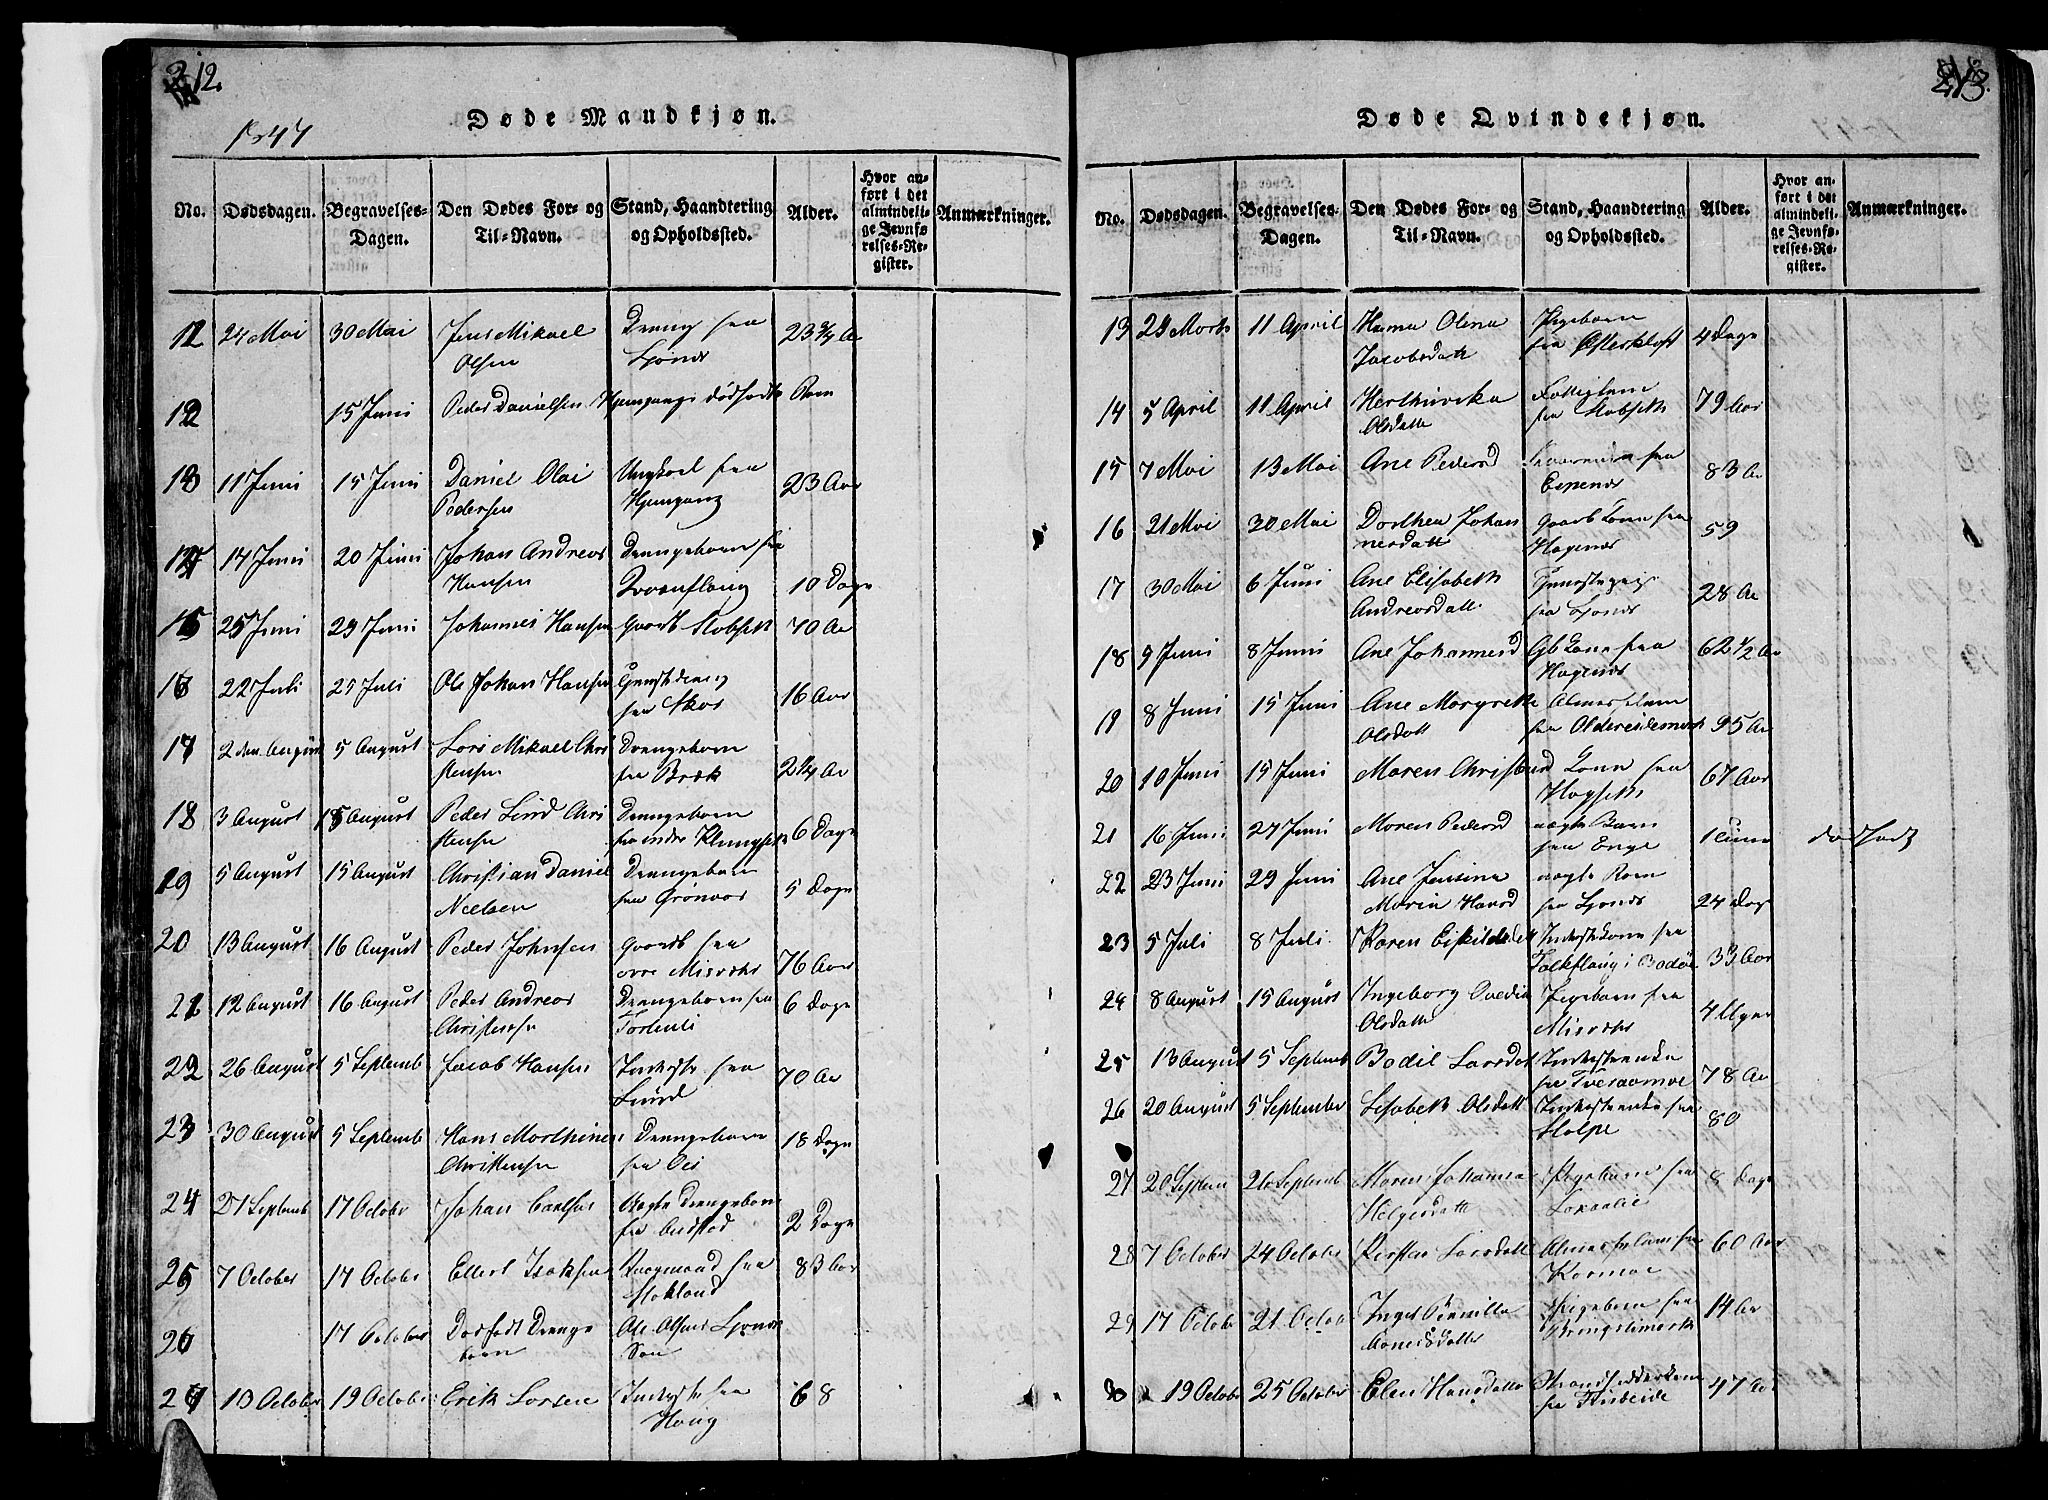 212.
1847
Døde Mandkjøn.
No. Dødsdagen. Begravelses-Dagen. Den Dødes For- og Til-Navn. Stand, Haandtering og Opholdssted. Alder. Hvor anført i det almindelige Jevnførelses-Register. Anmærkninger.
11 24 Mai 30 Mai Jens Mikael Olsen Dreng fra 23 3/4 Aar
12 15 Juni Peder Danielsen Hjemgangs dødfødte Barn
13 11 Juni 15 Juni Daniel Olai Pedersen Ungkarl fra Hjemgang 23 Aar
14 14 Juni 20 Juni Johan Andreas Hansen Drengebarn fra Qvanflaug 10 Dage
15 25 Juni 29 Juni Johannes Hansen Gaardb Slobseth 70 Aar
16 22 Juli 25 Juli Ole Johan Hansen fra Skar 16 Aar
17 2den August 5 August Lars Mikael Christensen Drengebarn fra Bræk 2 1/4 Aar
18 3 August 15 August Peder Lind Christensen Drengebarn fra indre Klungset 6 Dage
19 5 August 15 August Christian Daniel Nielsen Drengebarn fra Grønaas 5 Dage
20 13 August 16 August Peder Johnsen Gaardb fra øvre Misvær 76 Aar
21 12 August 16 August Peder Andreas Christensen Drengebarn fra 6 Dage
22 26 August 5 Septemb Jacob Hansen Inderste fra Lund 70 Aar
23 30 August 5 Septemb Hans Morthines Christensen Drengebarn fra Oei 18 Dage
24 21 Septemb 17 October Johan Carlsen Uægte Drengebarn fra 2 Dage
25 7 October 17 October Ellert Isaksen fra Stokland 83 Aar
26 17 October Dødfødt Drengebarn Ole Olsens Søn
27 10 October 19 October Erik Larsen Inderste fra Haug 68
213.
Døde Qvindekjøn.
No. Dødsdagen. Begravelses-Dagen. Den Dødes For- og Til-Navn. Stand, Haandtering og Opholdssted. Alder. Hvor anført i det almindelige Jevnførelses-Register. Anmærkninger.
13 29 Marts 11 April Hanna Olena Jacobsdatt Pigebarn fra Østerkløft 4 Dage
14 5 April 11 April Olsdatt fra Slobseth 79 Aar
15 7 Mai 13 Mai Ane Pedersd fra Espenes 83 Aar
16 21 Mai 30 Mai Dorthea Johannesdatt Gaardb Kone fra Hagenes 59
17 30 Mai 6 Juni Ane Elisabeth Andreasdatt fra 28 Aar
18 9 Juni 8 Juni Ane Johannesd Gb Kone fra Hagenes 62 1/2 Aar
19 8 Juni 15 Juni Ane Margreth Olsdatt fra Oldereidemark 95 Aar
20 10 Juni 15 Juni Maren Christensd Kone fra Hagseth 67 Aar
21 16 Juni 27 Juni Maren Pedersd ægte Barn fra Enge dødfødt
22 23 Juni 29 Juni Ane Jensine Maria Hansd ægte Barn fra 24 Dage
23 5 Juli 8 Juli Karen Eskildsdatt Inderstkone fra Falkflaug i Bodø 33 Aar
24 8 August 15 August Ingeborg Ovedia Olsdatt Pigebarn fra Misvær 4 Uger
25 13 August 5 Septemb Bodil Larsdat Inderstenke fra Tveraamoe 78 Aar
26 20 August 5 September Lisabeth Olsdatt Inderstenke fra Stolpe 80
27 20 Septem 26 Septemb Maren Johanna Helgesdatt Pigebarn fra 8 Dage
28 7 October 24 October Kirsten Larsdatt fra Karmoe 60 Aar
29 17 October 21 October Inger Pernilla Pigebarn fra Bringslimark 14 Aar
30 19 October 25 October Elen Hansdatter fra 47 Aar